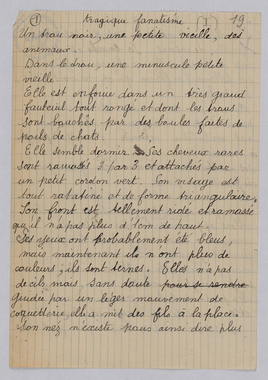 ① tragique fanatisme (1) 19
Un trou noir, une petite vieille, des
animaux.
Dans le trou, une minuscule petite
vieille
Elle est enfouie dans un très grand
fauteuil tout rongé et dont les trous
sont bouchés par des boules faites de
poils de chats.
Elle semble dormir. Ses cheveux rares
sont ramassés 3 par 3 et attachés par
un petit cordon vert. Son visage est
tout ratatiné et de forme triangulaire.
Son front est tellement ridé et ramassé
qu'il n'a pas plus d'1 cm de haut.
Ses yeux ont probablement été bleus,
mais maintenant ils n'ont plus de
couleurs, ils sont ternes. Elles n'a pas
de cils mais sans doute pour se rendre
guidée par un léger mouvement de
coquetterie, elle a mit des fils à la place.
Son nez n'existe pour ainsi dire plus